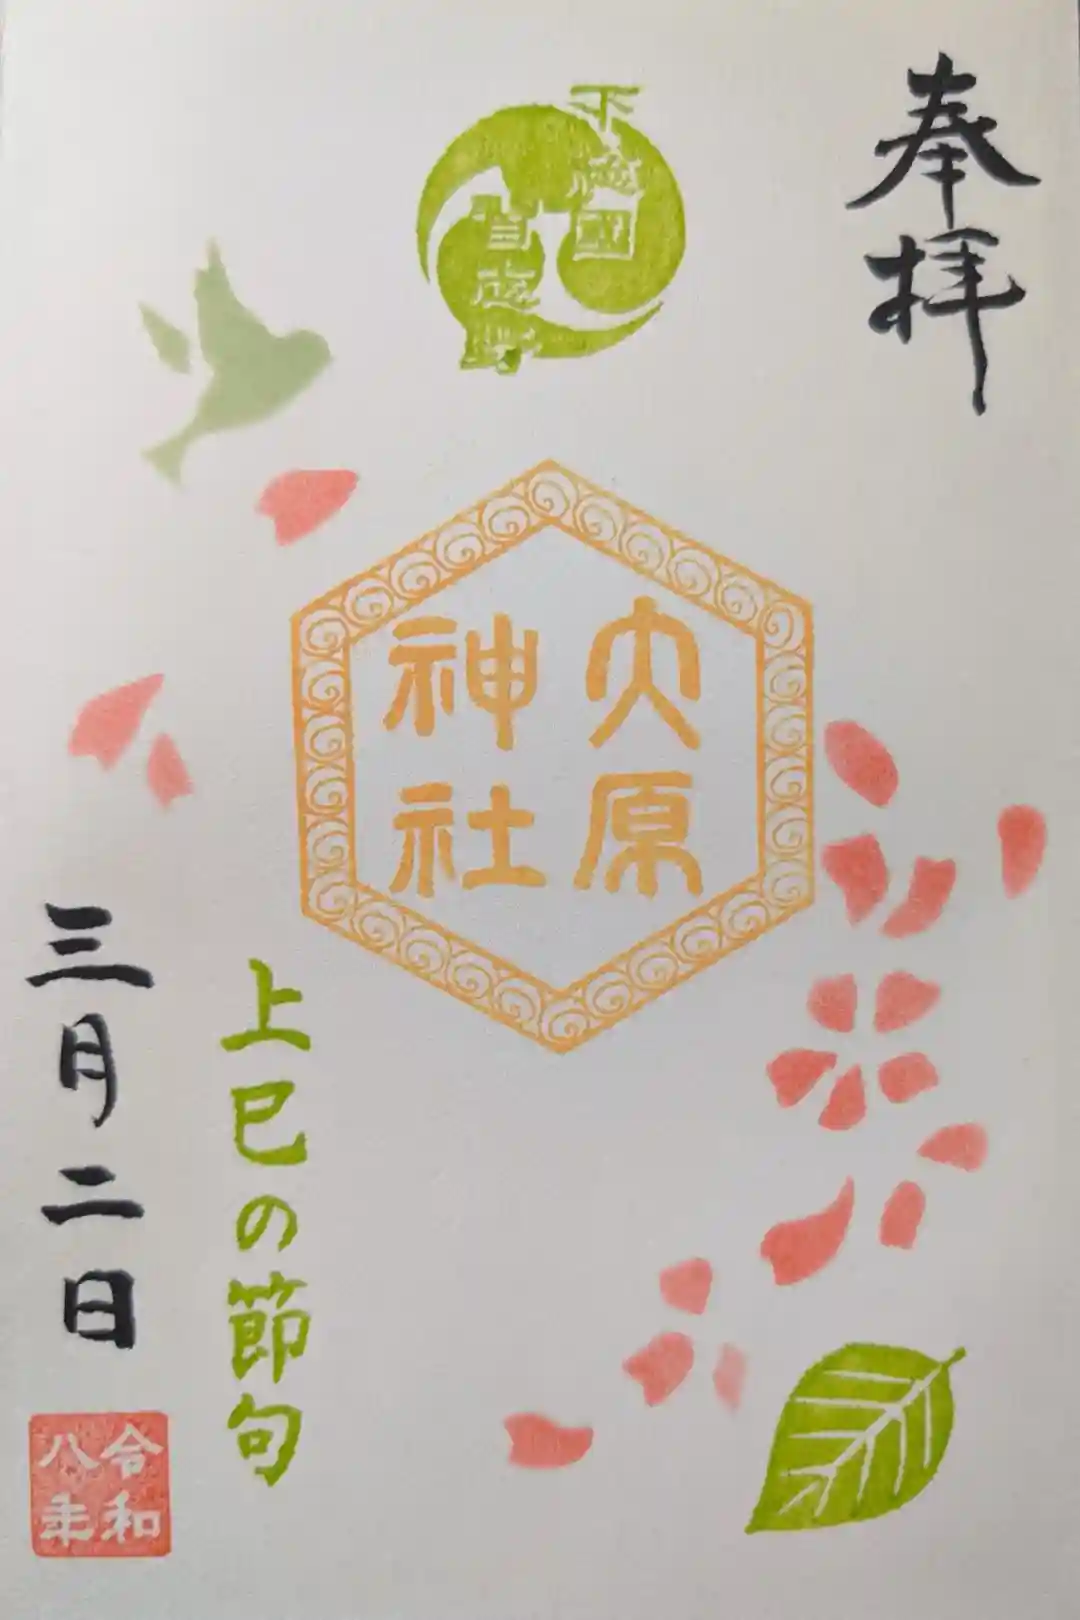 奉拝
下総国
習志野
大原
神社
上巳の節句
三月二日
令和
八年